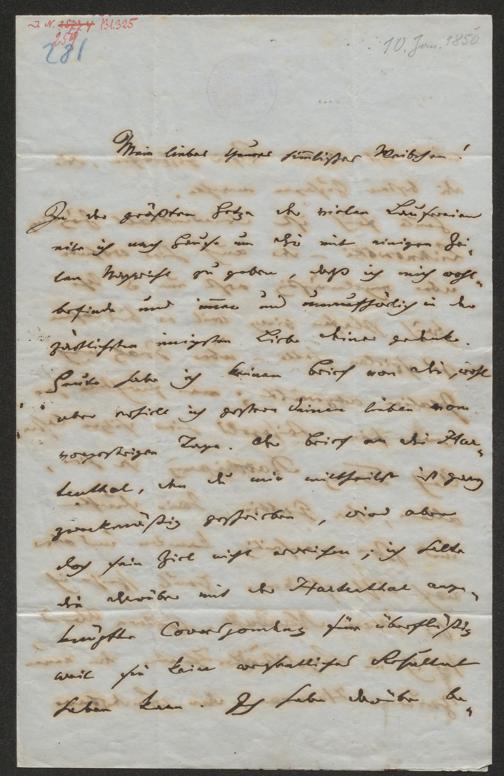 J. N. 28774 Bl.325
259
281
10. Jan. 1850
Mein liebes theures himmlisches Weibchen!
In der größten Hetze der vielen Laufereien
eile ich nach Hause um Dir mit einigen Zei-
len Nachricht zu geben, daß ich mich wohl-
befinde und immer und unaufhörlich in der
zärtlichsten innigsten Liebe Deiner gedenke.
Heute habe ich keinen Brief von Dir, wohl
aber erhielt ich gestern Deinen lieben vom
vorgestrigen Tage. Der Brief an die Har-
tenthal, den Du mir mittheilst ist ganz
zweckmäßig geschrieben, wird aber
doch sein Ziel nicht erreichen, ich halte
die darüber mit der Hartenthal ange-
knüpfte Correspondenz für überflüssig
weil sie kein vortheilhaftes Resultat
haben kann. Ich habe darüber be-